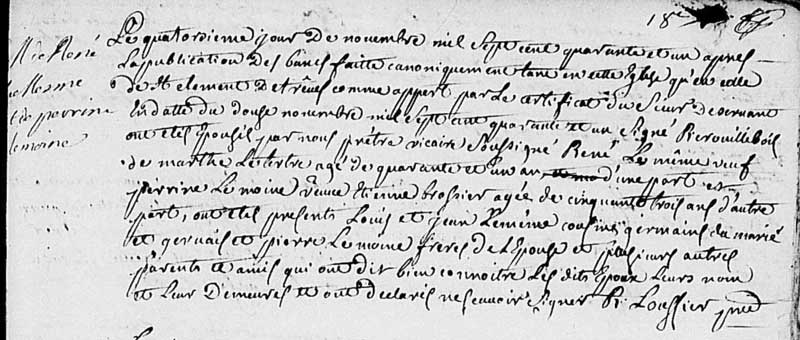 18e
M de René
le Mesme
et de perrine
lemoine
Le quatorsieme jour de novembre mil sept cent quarante et un apres
la publication des bancs faitte canoniquement tant en cette Eglise qu'en celle
de St Clement de trêves comme appert par le certificat du sieur deservant
en datte du douse novembre mil sept cent quarante et un signé
ont etes Epousés par nous prêtre vicaire soussigné René Le même veuf
de marthe Letertre agé de quarante et un an d'une part et
perrine Le moine veuve Etienne brossier agée de cinquante trois ans d'autre
part, ont etes presents Louis et jean Lemême cousins germains du marié
et gervais et pierre Le moine freres de L'Epouse et plusieurs autres
parents et amis qui ont dit bien connoitre les dits Epoux leurs nom
et leur demeures et ont declarés ne scavoir signer Loussier